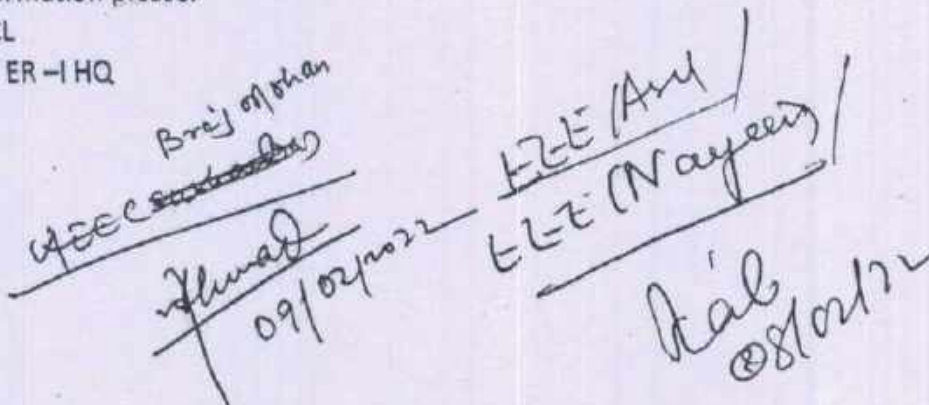 EL
ER –I HQ
Brij Mohan
AEE(
Ahmad
09/02/2022
EEE/
EEE(Nayeem)
08/02/22